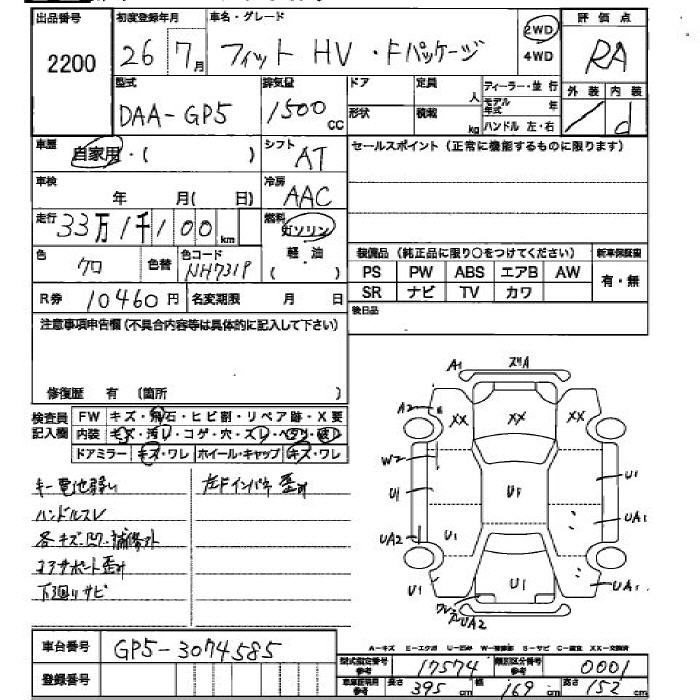 出品番号 2200
初度登録年月 26 7月
車名・グレード フィット HV・Fパッケージ
2WD
4WD
評価点 RA
外装 内装 d
型式 DAA-GP5
排気量 1500 cc
ドア 形状
定員 人
積載 kg
ディーラー・並行
モデル年式 年
ハンドル 左・右
車歴 自家用・( )
シフト AT
車検 年 月( 日)
冷房 AAC
走行 33万1千100km
燃料 ガソリン
軽油
( )
色 クロ
色替
色コード NH731P
R券 10460円
名変期限 月 日
セールスポイント (正常に機能するものに限ります)
装備品 (純正品に限り○をつけてください)
新車保証書
PS PW ABS エアB AW
SR ナビ TV カワ
有・無
後日品
注意事項申告欄 (不具合内容等は具体的に記入して下さい)
修復歴 有 (箇所 )
検査員記入欄
FW キズ・飛石・ヒビ割・リペア跡・X要
内装 キズ・汚レ・コゲ・穴・スレ・ヘタリ・破レ
ドアミラー キズ・ワレ ホイール・キャップ キズ・ワレ
キー電池弱い
ハンドルスレ
各キズ・凹・補修才
コアサポート歪み
下廻リサビ
左Fインパネ歪み
A1 ズリA
A2 XX XX XX
W2
U1 U1 U1
UA2 U1 UA1
U1 U1 UA1
UA2
A-キズ E-エクボ U-凹み W-補修跡 S-サビ C-腐食 XX-交換済
車台番号 GP5-3074585
登録番号
型式指定番号参考 17574
類別区分番号参考 0001
車庫証明用参考 長さ 395 cm 幅 169 cm 高さ 152 cm